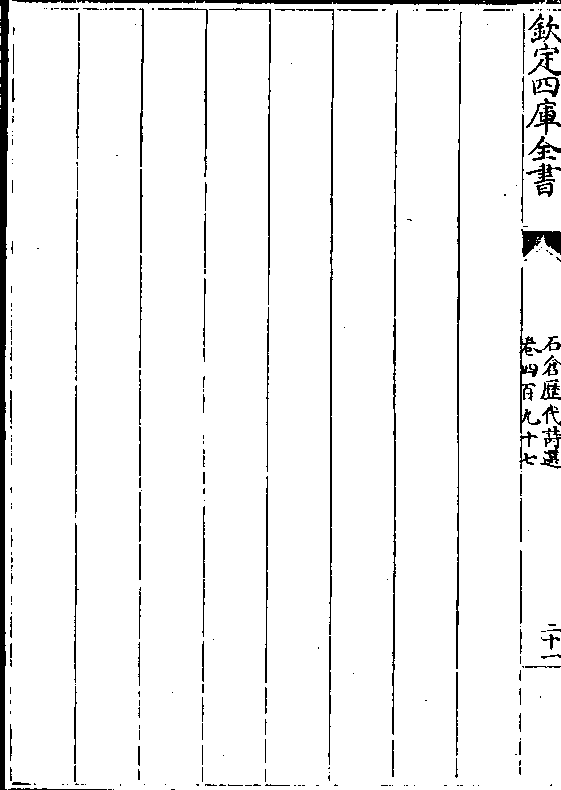 欽定四庫全書
石倉歷代詩選
卷四百九十七
二十一